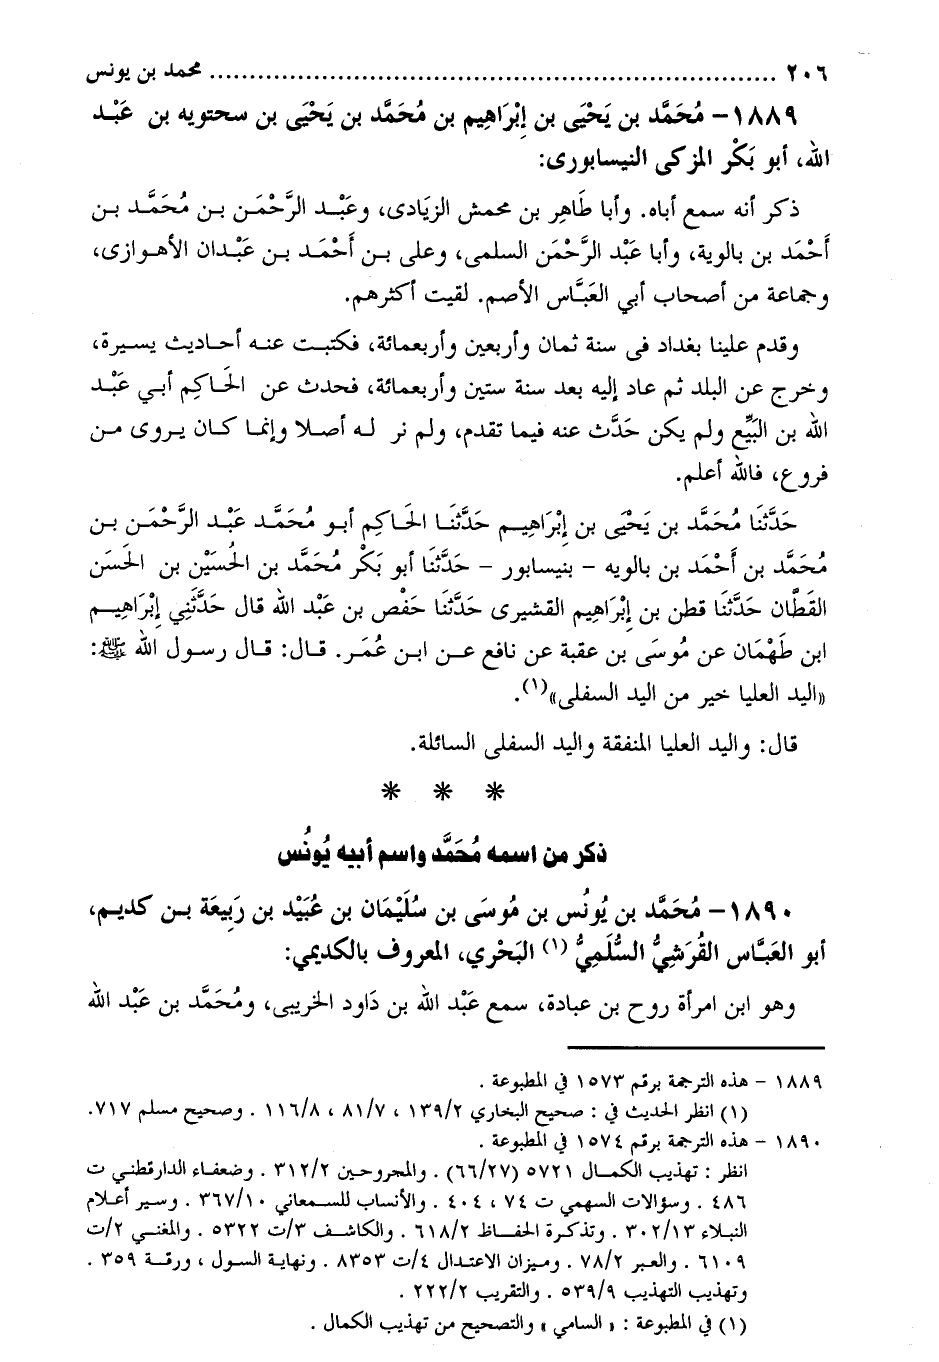 ٢٠٦ ........................................................................ محمد بن يونس
١٨٨٩ – مُحَمَّد بن يَحْيَى بن إِبْرَاهِيم بن مُحَمَّد بن يَحْيَى بن سحتويه بن عَبْد
الله، أبو بَكْر المزكى النيسابورى:
ذكر أنه سمع أباه. وأبا طَاهِر بن محمش الزيَادى، وعَبْد الرَّحْمَن بن مُحَمَّد بن
أَحْمَد بن بالوية، وأبا عَبْد الرَّحْمَن السلمى، وعلى بن أَحْمَد بن عَبْدان الأهوازى،
وجماعة من أصحاب أبي العَبَّاس الأصم. لقيت أكثرهم.
وقدم علينا بغداد فى سنة ثمان وأربعين وأربعمائة، فكتبت عنه أحاديث يسيرة،
وخرج عن البلد ثم عاد إليه بعد سنة ستين وأربعمائة، فحدث عن الحَاكِم أبي عَبْد
الله بن البَيِّع ولم يكن حَدَّث عنه فيما تقدم، ولم نر له أصلا وإنما كان يروى من
فروع، فالله أعلم.
حَدَّثنَا مُحَمَّد بن يَحْيَى بن إِبْرَاهِيم حَدَّثنَا الحَاكِم أبو مُحَمَّد عَبْد الرَّحْمَن بن
مُحَمَّد بن أَحْمَد بن بالويه – بنيسابور – حَدَّثنَا أبو بَكْر مُحَمَّد بن الحُسَيْن بن الحَسَن
القَطَّان حَدَّثنَا قطن بن إِبْرَاهِيم القشيرى حَدَّثنَا حَفْص بن عَبْد الله قال حَدَّثَنِي إِبْرَاهِيم
ابن طَهْمَان عن مُوسَى بن عقبة عن نافع عن ابن عُمَر. قال: قال رسول الله ﷺ:
«اليد العليا خير من اليد السفلى»(١).
قال: واليد العليا المنفقة واليد السفلى السائلة.
* * *
ذكر من اسمه مُحَمَّد واسم أبيه يُونُس
١٨٩٠ – مُحَمَّد بن يُونُس بن مُوسَى بن سُلَيْمَان بن عُبَيْد بن رَبِيعَة بن كديم،
أبو العَبَّاس القُرَشِيُّ السُّلَمِيُّ (١) البَحْري، المعروف بالكديمي:
وهو ابن امرأة روح بن عبادة، سمع عَبْد الله بن دَاود الخريبى، ومُحَمَّد بن عَبْد الله
١٨٨٩ – هذه الترجمة برقم ١٥٧٣ في المطبوعة .
(١) انظر الحديث في : صحيح البخاري ١٣٩/٢ ، ٨١/٧ ، ١١٦/٨ . وصحيح مسلم ٧١٧.
١٨٩٠ – هذه الترجمة برقم ١٥٧٤ في المطبوعة .
انظر : تهذيب الكمال ٥٧٢١ (٦٦/٢٧) . والمجروحين ٣١٢/٢ . وضعفاء الدارقطني ت
٤٨٦ . وسؤالات السهمي ت ٧٤ ، ٤٠٤ . والأنساب للسمعاني ٣٦٧/١٠ . وسير أعلام
النبلاء ٣٠٢/١٣ . وتذكرة الحفاظ ٦١٨/٢ . والكاشف ٣/ت ٥٣٢٢ . والمغني ٢/ت
٦١٠٩ . والعبر ٧٨/٢ . وميزان الاعتدال ٤/ت ٨٣٥٣ . ونهاية السول ، ورقة ٣٥٩ .
وتهذيب التهذيب ٥٣٩/٩ . والتقريب ٢٢٢/٢ .
(١) في المطبوعة : « السامي » والتصحيح من تهذيب الكمال .